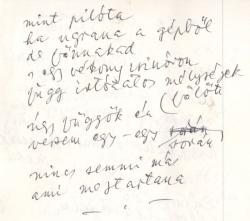 mint pilóta
ha ugrana a gépből
de fönnakad
s egy vékony zsinóron
függ irtózatos mélységek
(fölött
úgy függök én
versem egy-egy
során
nincs semmi más
ami megtartana